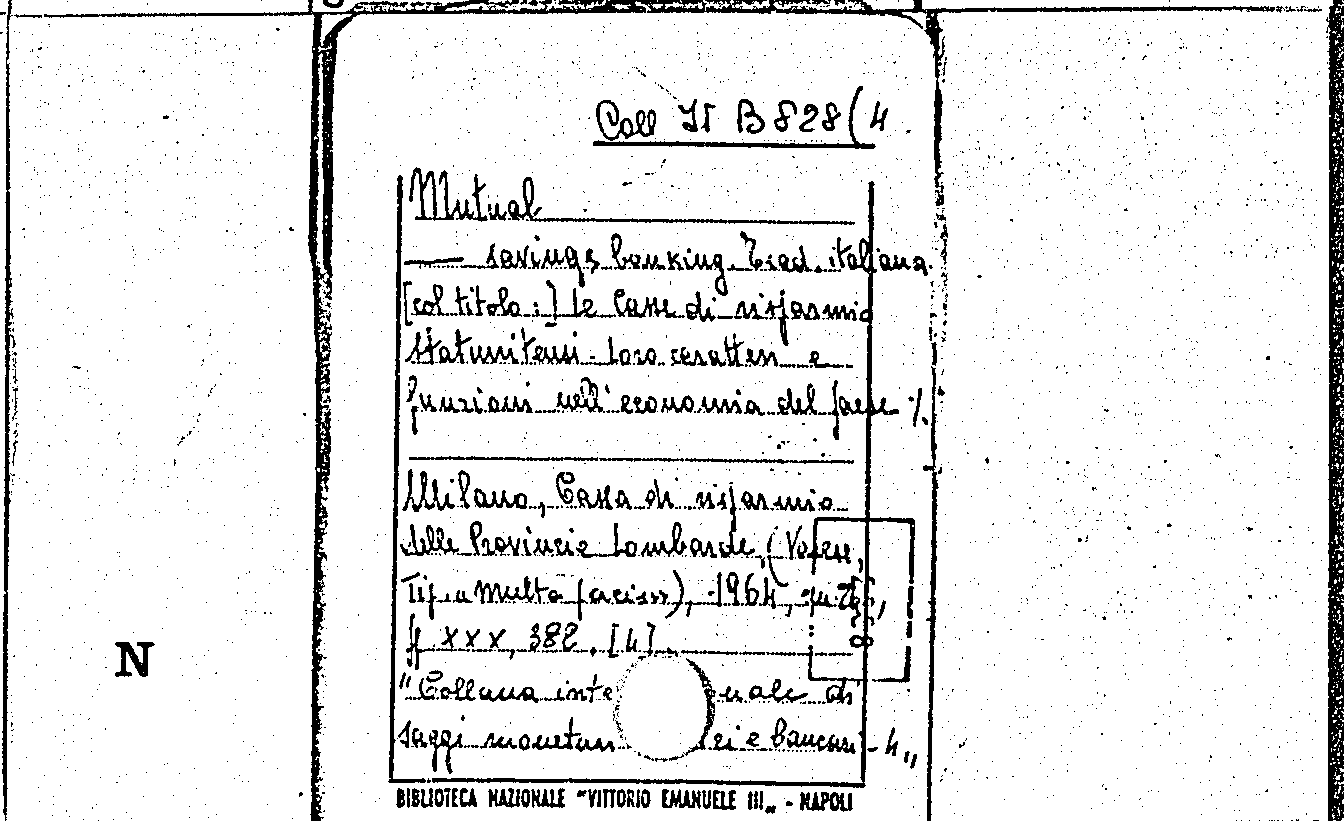 Coll IV B 828(4
Mutual
— savings banking. Trad. italiana
[col titolo:] Le Casse di risparmio
statunitensi. Loro caratteri e
funzioni nell'economia del paese %.
Milano, Cassa di risparmio
delle Provincie Lombarde, (Varese,
Tip. Multa paucis), 1964,
pp XXX, 382. [4].
N
"Collana inte nale di
saggi monetari e bancari - 4"
BIBLIOTECA NAZIONALE "VITTORIO EMANUELE III„ - NAPOLI